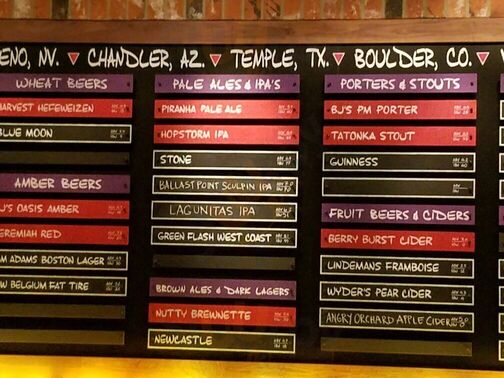 ENO, NV. ▼ CHANDLER, AZ. ▼ TEMPLE, TX. ▼ BOULDER, CO. ▼
WHEAT BEERS
HARVEST HEFEWEIZEN
BLUE MOON
AMBER BEERS
J'S OASIS AMBER
JEREMIAH RED
AM ADAMS BOSTON LAGER
W BELGIUM FAT TIRE
PALE ALES & IPA'S
PIRANHA PALE ALE
HOPSTORM IPA
STONE
BALLAST POINT SCULPIN IPA
LAGUNITAS IPA
GREEN FLASH WEST COAST
BROWN ALES & DARK LAGERS
NUTTY BREWNETTE
NEWCASTLE
PORTERS & STOUTS
BJ'S PM PORTER
TATONKA STOUT
GUINNESS
FRUIT BEERS & CIDERS
BERRY BURST CIDER
LINDEMANS FRAMBOISE
WYDER'S PEAR CIDER
ANGRY ORCHARD APPLE CIDER